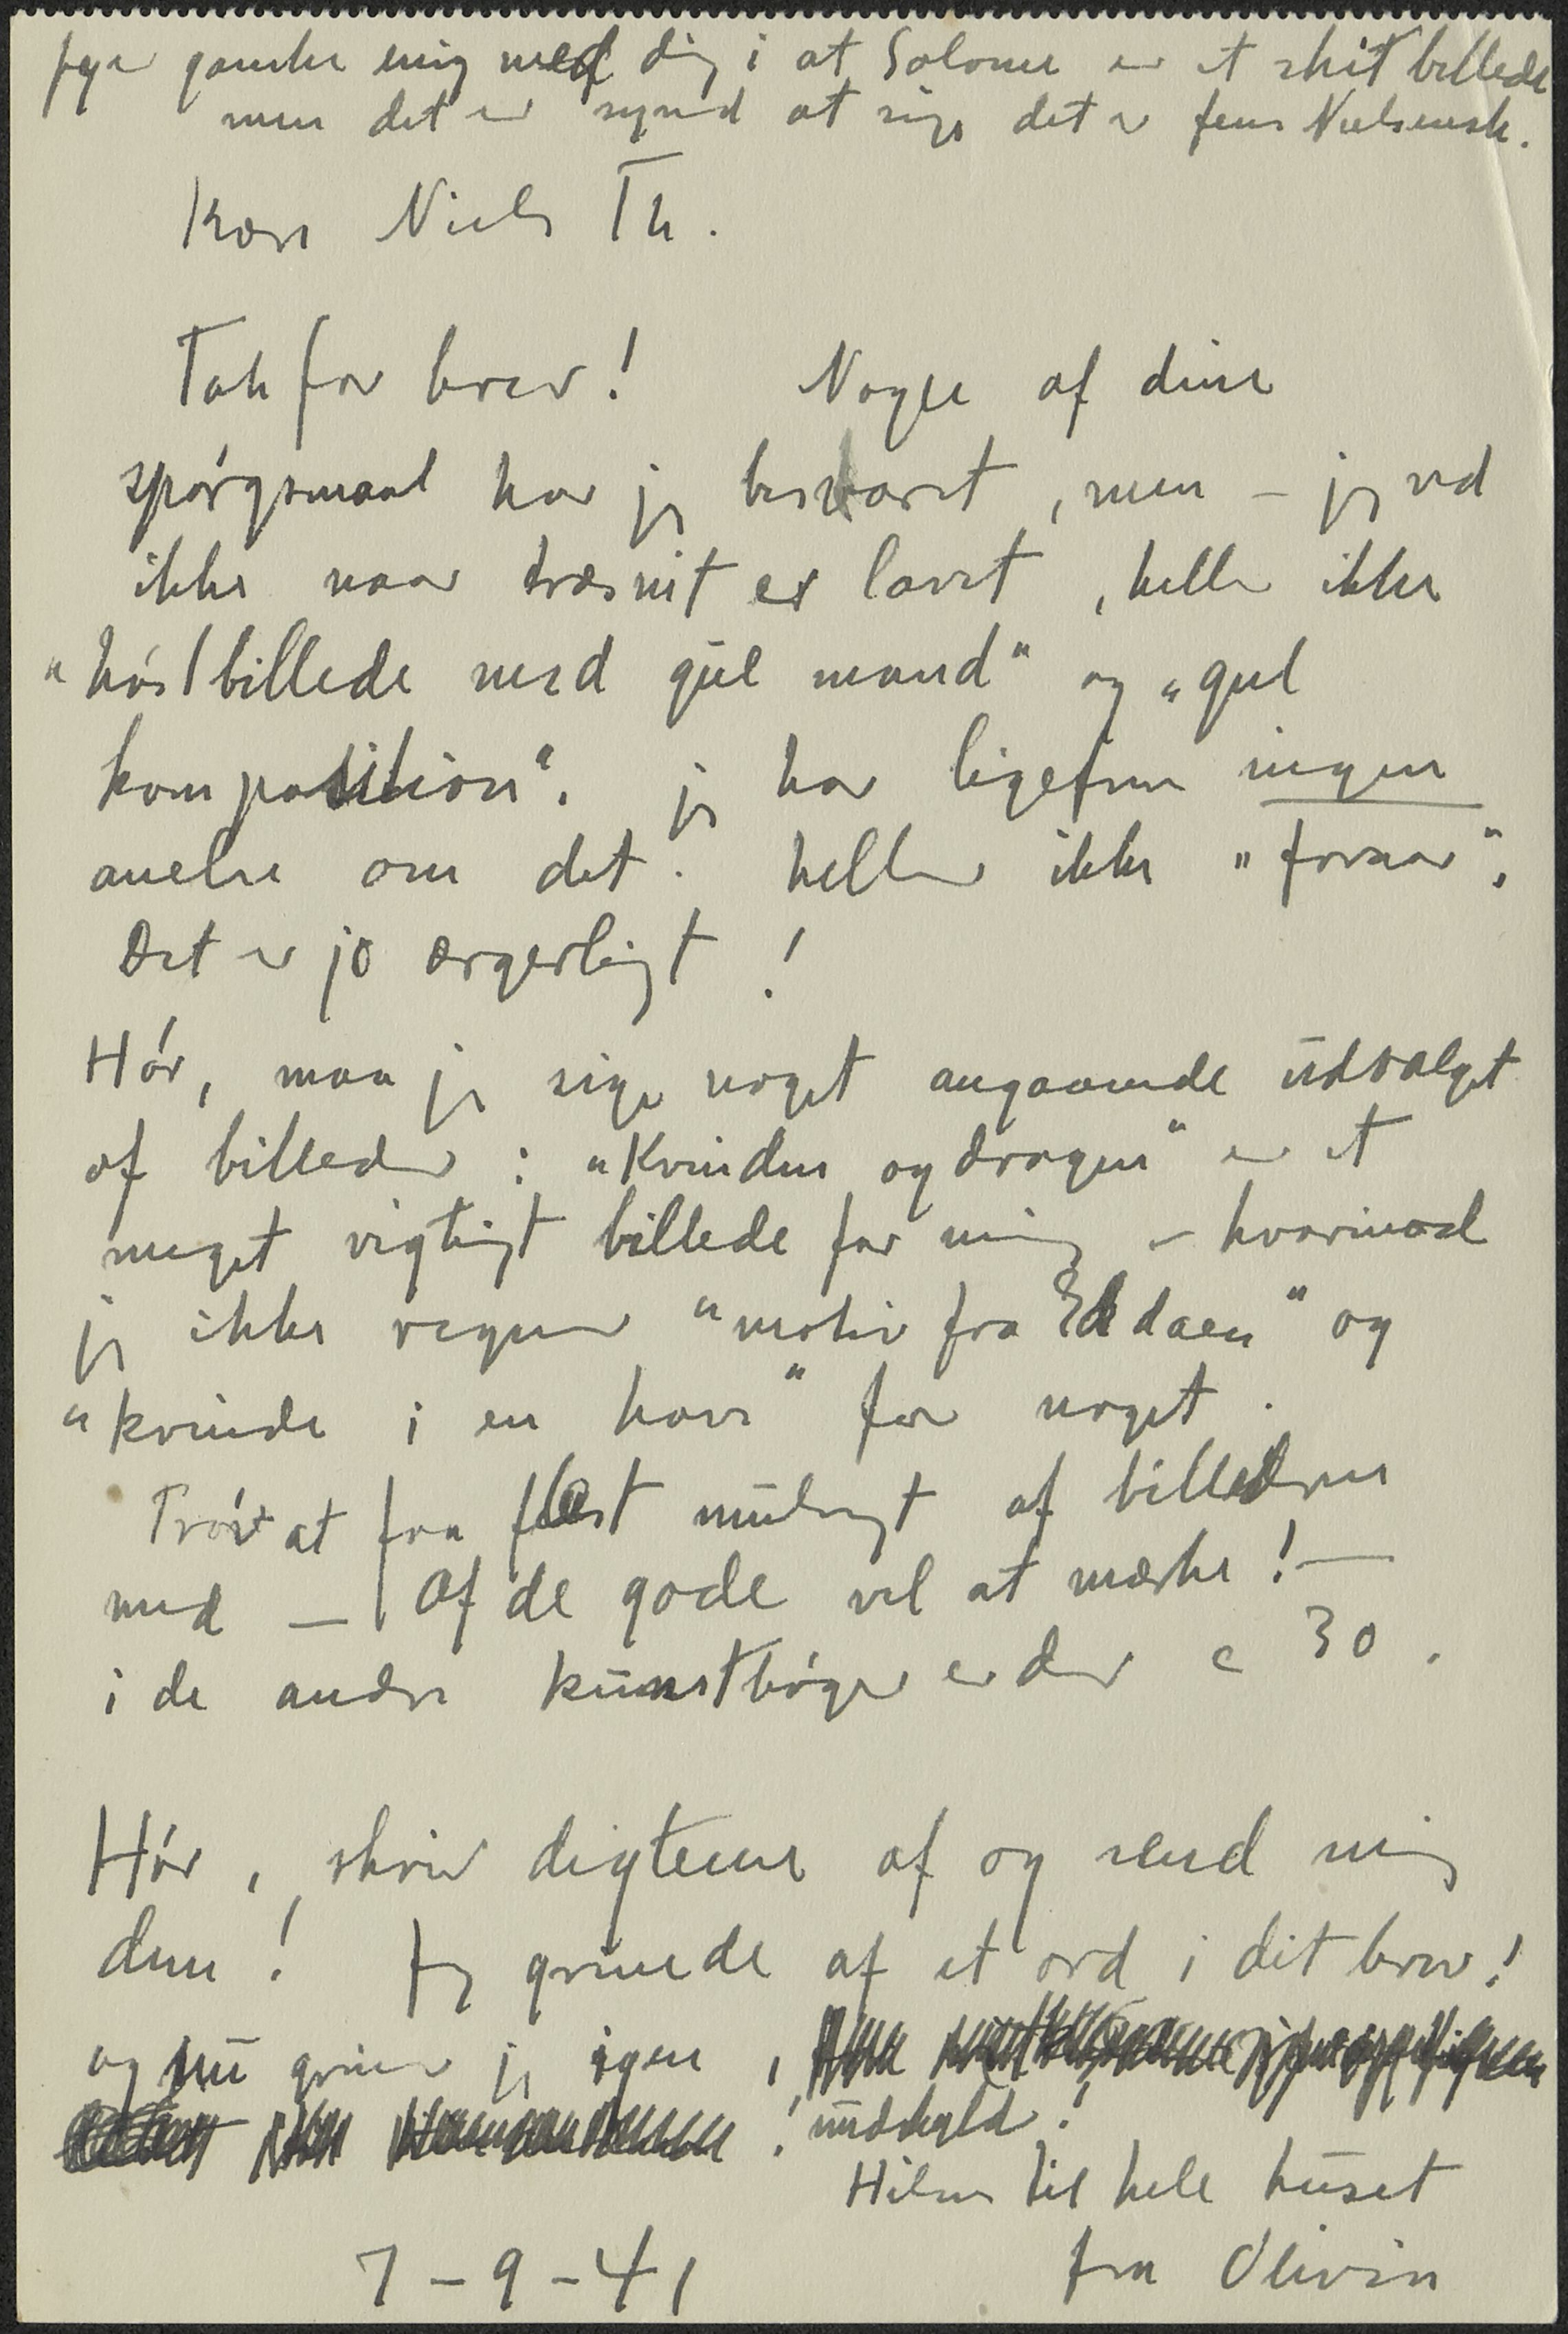 Jeg er ganske enig med dig i at Salome er et skit billede
men det er synd at sige det er Jens Nielsensk.
Kære Niels Th.
Tak for brev! Nogle af dine
spórgsmaal har jeg besvaret, men – jeg ved
ikke naar træsnit er lavet, heller ikke
"hóstbillede med gul mand" og "gul
komposition". jeg har ligefrem ingen
anelse om det. heller ikke "foraar".
Det er jo ærgerligt!
Hór, maa jeg sige noget angaaende udvalget
af billeder: "Kvinden og dragen" er et
meget vigtigt billede for mig – hvorimod
jeg ikke regner "motiv fra Eddaen" og
"kvinde i en have" for noget.
Próv at faa flest muligt af billederne
med – Af de gode vel at mærke! –
i de andre kunstbóger er der c 30.
Hór, skriv digtene af og send mig
dem! Jeg grinede af et ord i dit brev!
og nu griner jeg igen,
! undskyld!
Hilsen til hele huset
fra Olivia
7-9-41